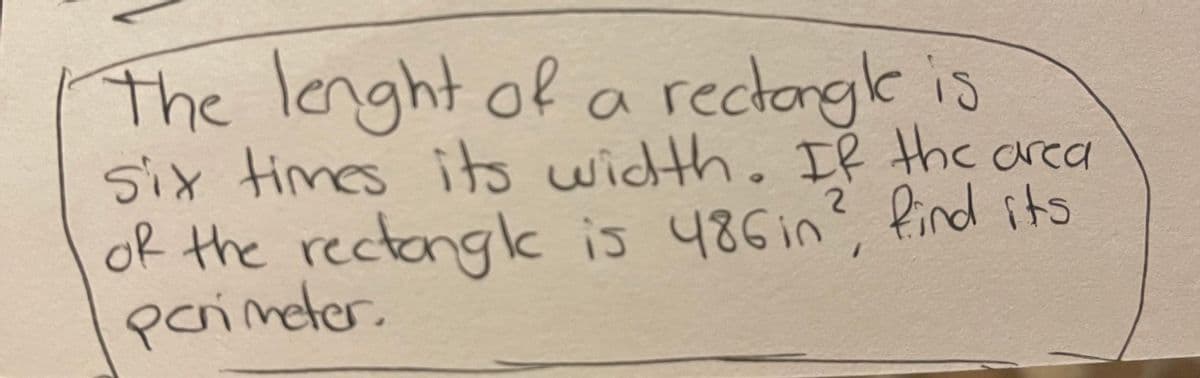 The lenght of a rectangle is
six times its width. If the area
of the rectangle is 486in², find its
perimeter.